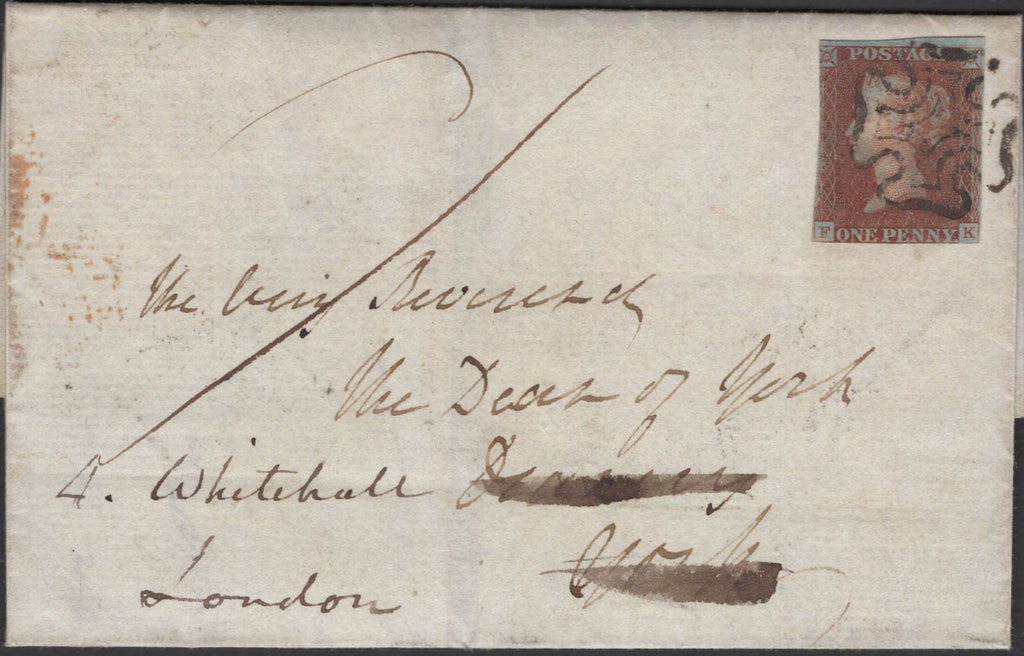 POSTAGE
F ONE PENNY K
The Very Reverend
The Dean of York
4. Whitehall Deanery
York
London